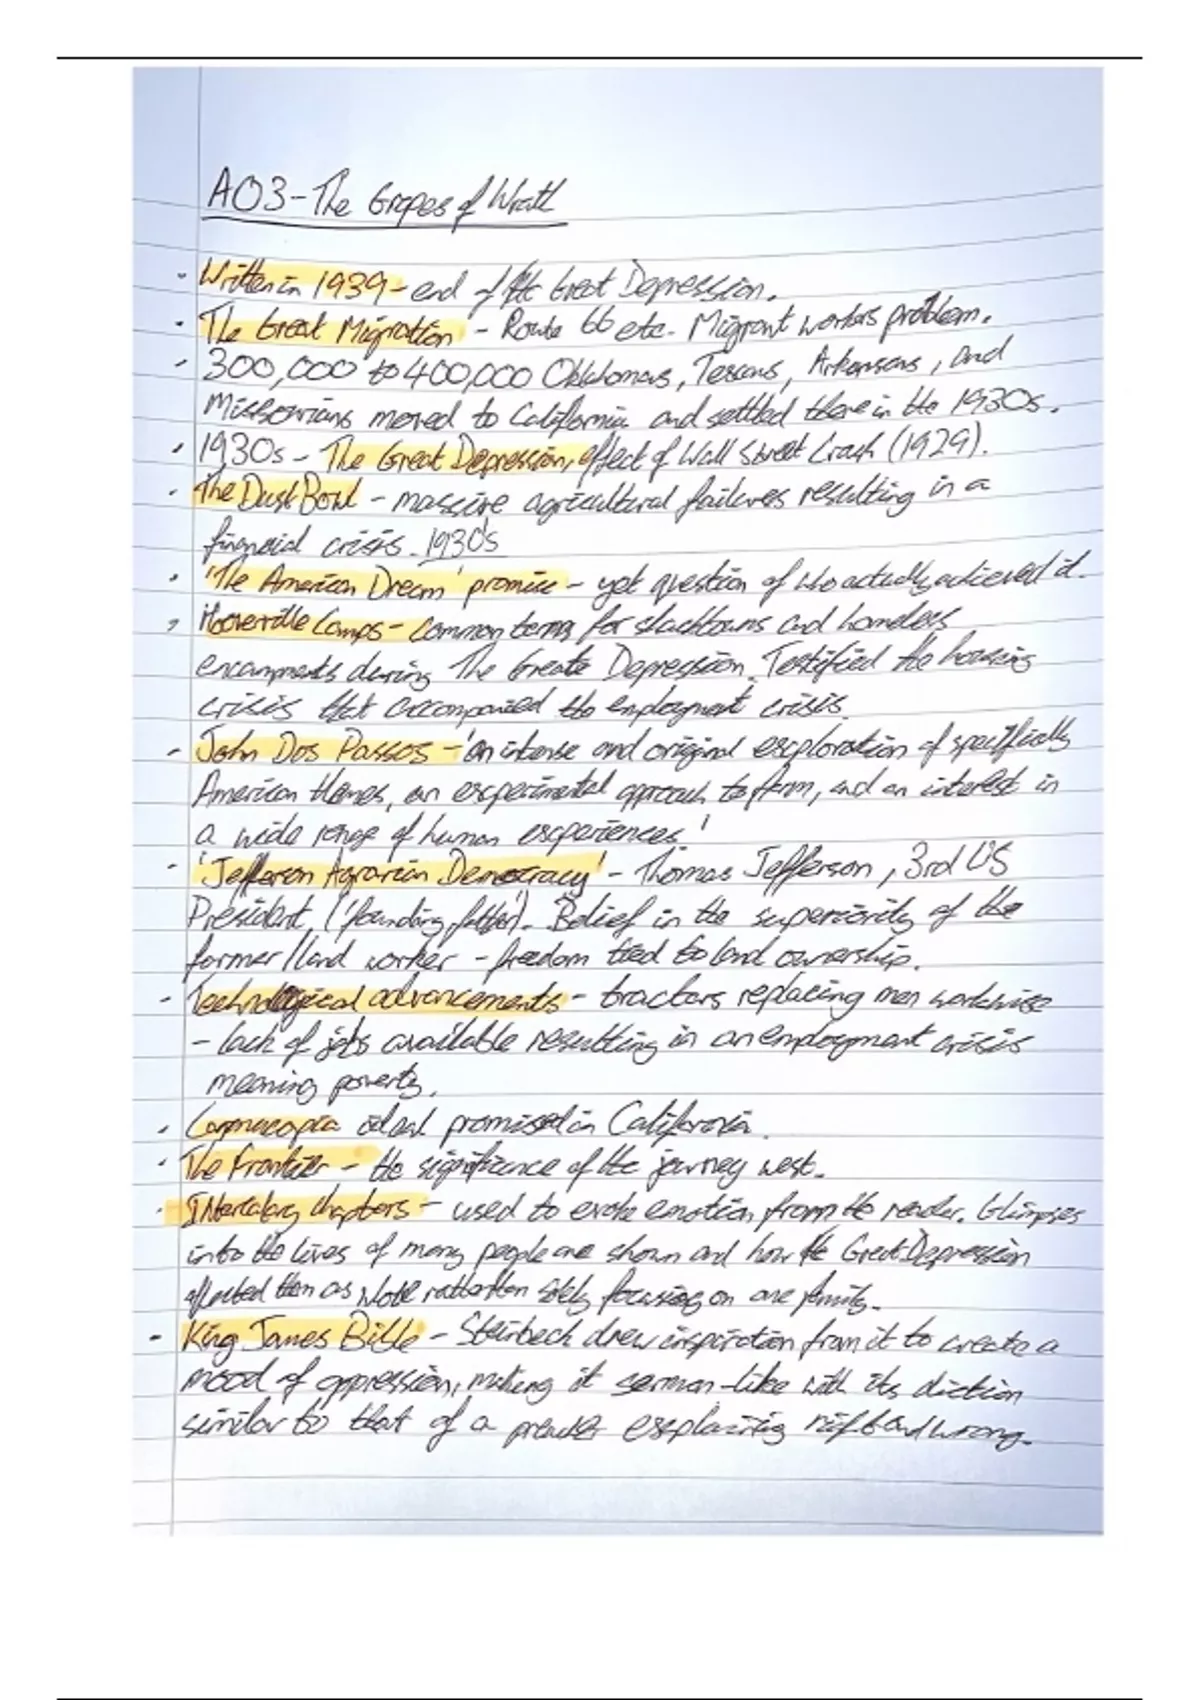 AO3 - The Grapes of Wrath
- Written in 1939 - end of the Great Depression.
- The Great Migration - Route 66 etc. Migrant workers problem.
- 300,000 to 400,000 Oklahomas, Texans, Arkansans, and
Missourians moved to California and settled there in the 1930s.
- 1930s - The Great Depression, effect of Wall Street Crash (1929).
- The Dust Bowl - massive agricultural failures resulting in a
financial crisis. 1930's
- 'The American Dream' promise - yet question of who actually achieved it.
- Hooverville Camps - Common terms for shacktowns and homeless
encampments during The Greate Depression. Testified the housing
crisis that accompanied the employment crisis.
- John Dos Passos - 'an intense and original exploration of specifically
American themes, an experimental approach to form, and an interest in
a wide range of human experiences.'
- 'Jefferson Agrarian Democracy' - Thomas Jefferson, 3rd US
President, ('founding father'). Belief in the superiority of the
farmer/land worker - freedom tied to land ownership.
- Technological advancements - tractors replacing men workwise
- lack of jobs available resulting in an employment crisis
meaning poverty.
- Cornucopia ideal promised in California.
- The Frontier - the significance of the journey west.
- Intercalary chapters - used to evoke emotion from the reader. Glimpses
into the lives of many people are shown and how the Great Depression
affected them as whole rather than solely focusing on one family.
- King James Bible - Steinbeck drew inspiration from it to create a
mood of oppression, making it sermon-like with its diction
similar to that of a preacher explaining right and wrong.